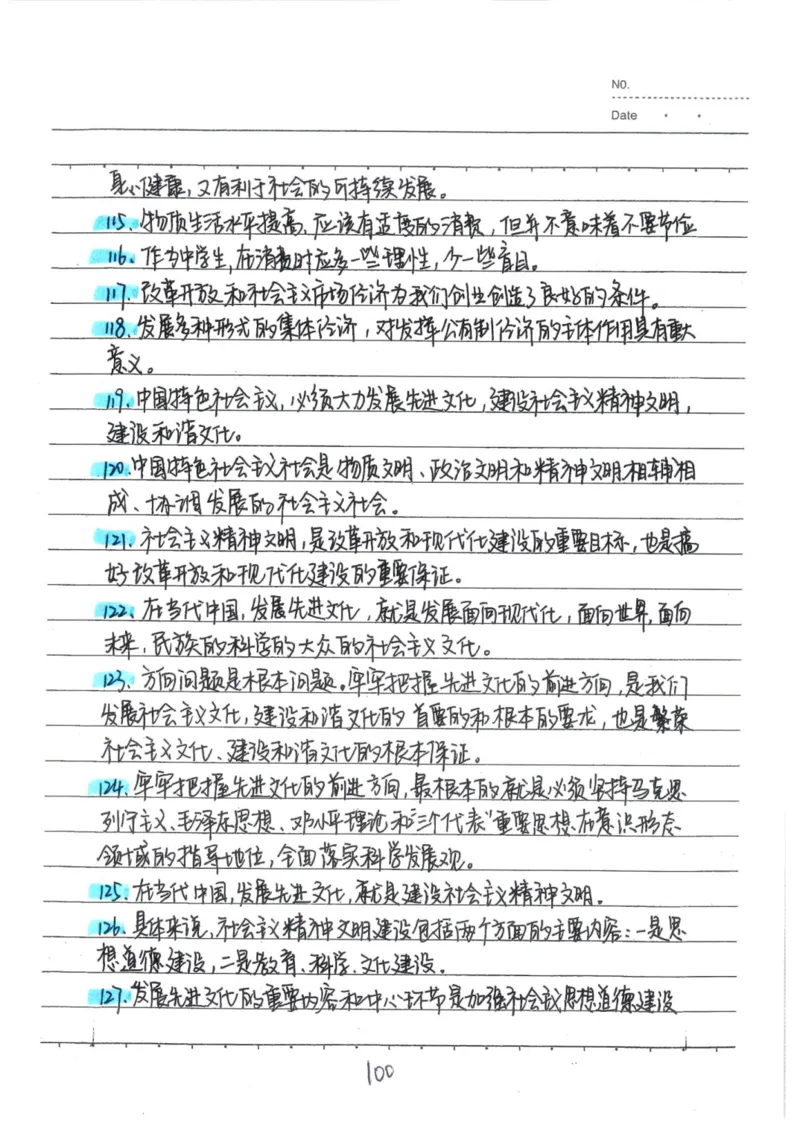 NO.
Date
身心健康,又有利于社会的可持续发展。
115、物质生活水平提高,应该有适度的消费,但并不意味着不要节俭
116、作为中学生,在消费时应多一些理性,少一些盲目。
117、改革开放和社会主义市场经济为我们创业创造了良好的条件。
118、发展多种形式的集体经济,对发挥公有制经济的主体作用具有重大
意义。
119、中国特色社会主义,必须大力发展先进文化,建设社会主义精神文明,
建设和谐文化。
120、中国特色社会主义社会是物质文明、政治文明和精神文明相辅相
成、协调发展的社会主义社会。
121、社会主义精神文明,是改革开放和现代化建设的重要目标,也是搞
好改革开放和现代化建设的重要保证。
122、在当代中国,发展先进文化,就是发展面向现代化,面向世界,面向
未来,民族的科学的大众的社会主义文化。
123、方向问题是根本问题。牢牢把握先进文化的前进方向,是我们
发展社会主义文化,建设和谐文化的首要的和根本的要求,也是繁荣
社会主义文化、建设和谐文化的根本保证。
124、牢牢把握先进文化的前进方向,最根本的就是必须坚持马克思
列宁主义、毛泽东思想、邓小平理论和“三个代表”重要思想在意识形态
领域的指导地位,全面落实科学发展观。
125、在当代中国,发展先进文化,就是建设社会主义精神文明。
126、具体来说,社会主义精神文明建设包括两个方面的主要内容:一是思
想道德建设,二是教育、科学、文化建设。
127、发展先进文化的重要内容和中心环节是加强社会主义思想道德建设
100